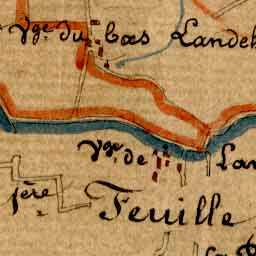 Vge. du bas Landel
Vge. de Lan
jère Feuille